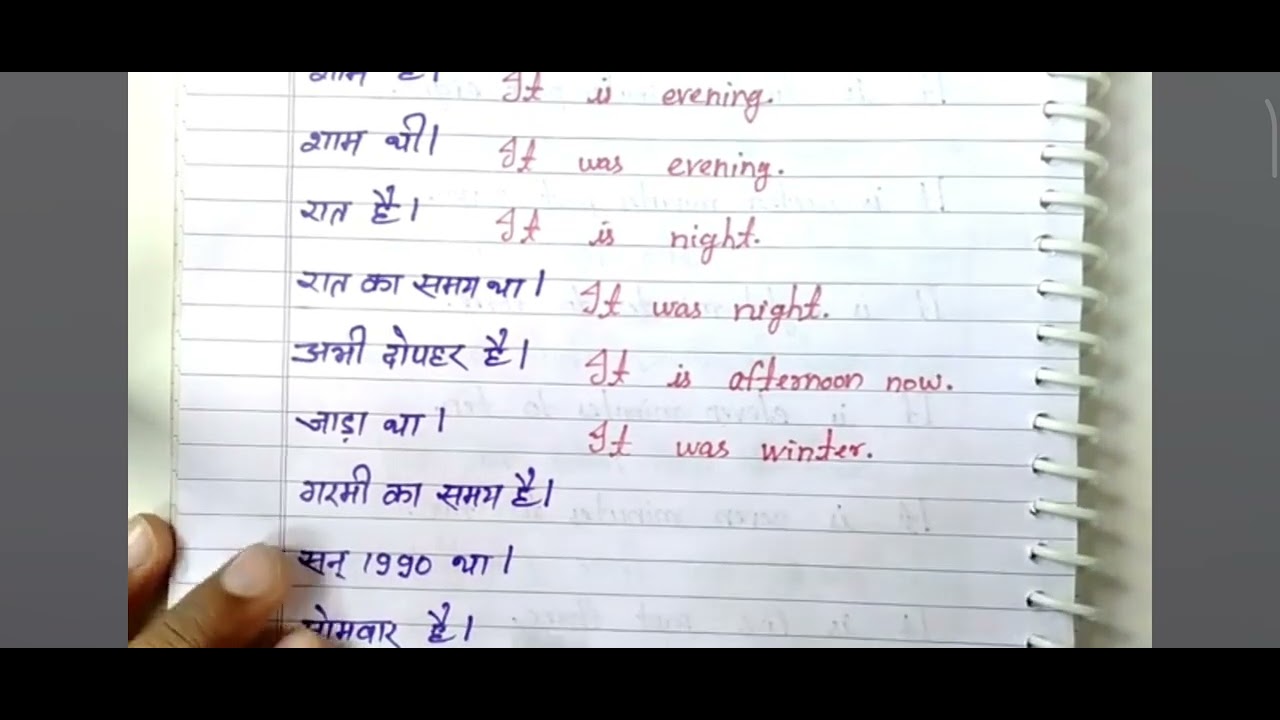 शाम है। It is evening.
शाम थी। It was evening.
रात है। It is night.
रात का समय था। It was night.
अभी दोपहर है। It is afternoon now.
जाड़ा था। It was winter.
गरमी का समय है।
सन् 1990 था।
सोमवार है।